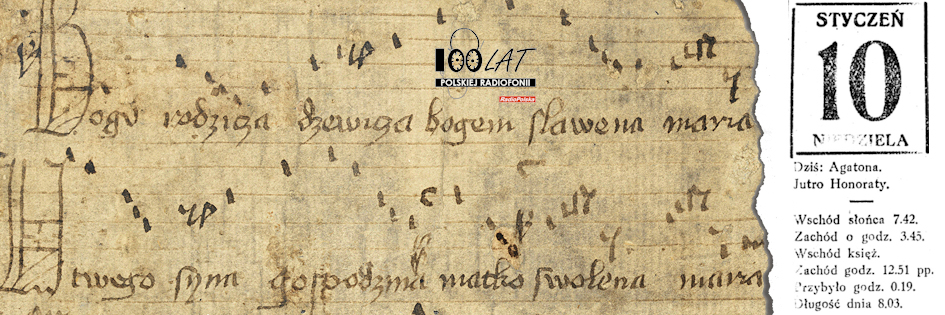 Bogu rodzicza dzewicza bogem slawena maria
U twego syna gospodzina matko swolena maria
100 LAT
POLSKIEJ RADIOFONII
RadioPolska
STYCZEŃ
10
NIEDZIELA
Dziś: Agatona.
Jutro Honoraty.
Wschód słońca 7.42.
Zachód o godz. 3.45.
Wschód księż.
Zachód godz. 12.51 pp.
Przybyło godz. 0.19.
Długość dnia 8.03.